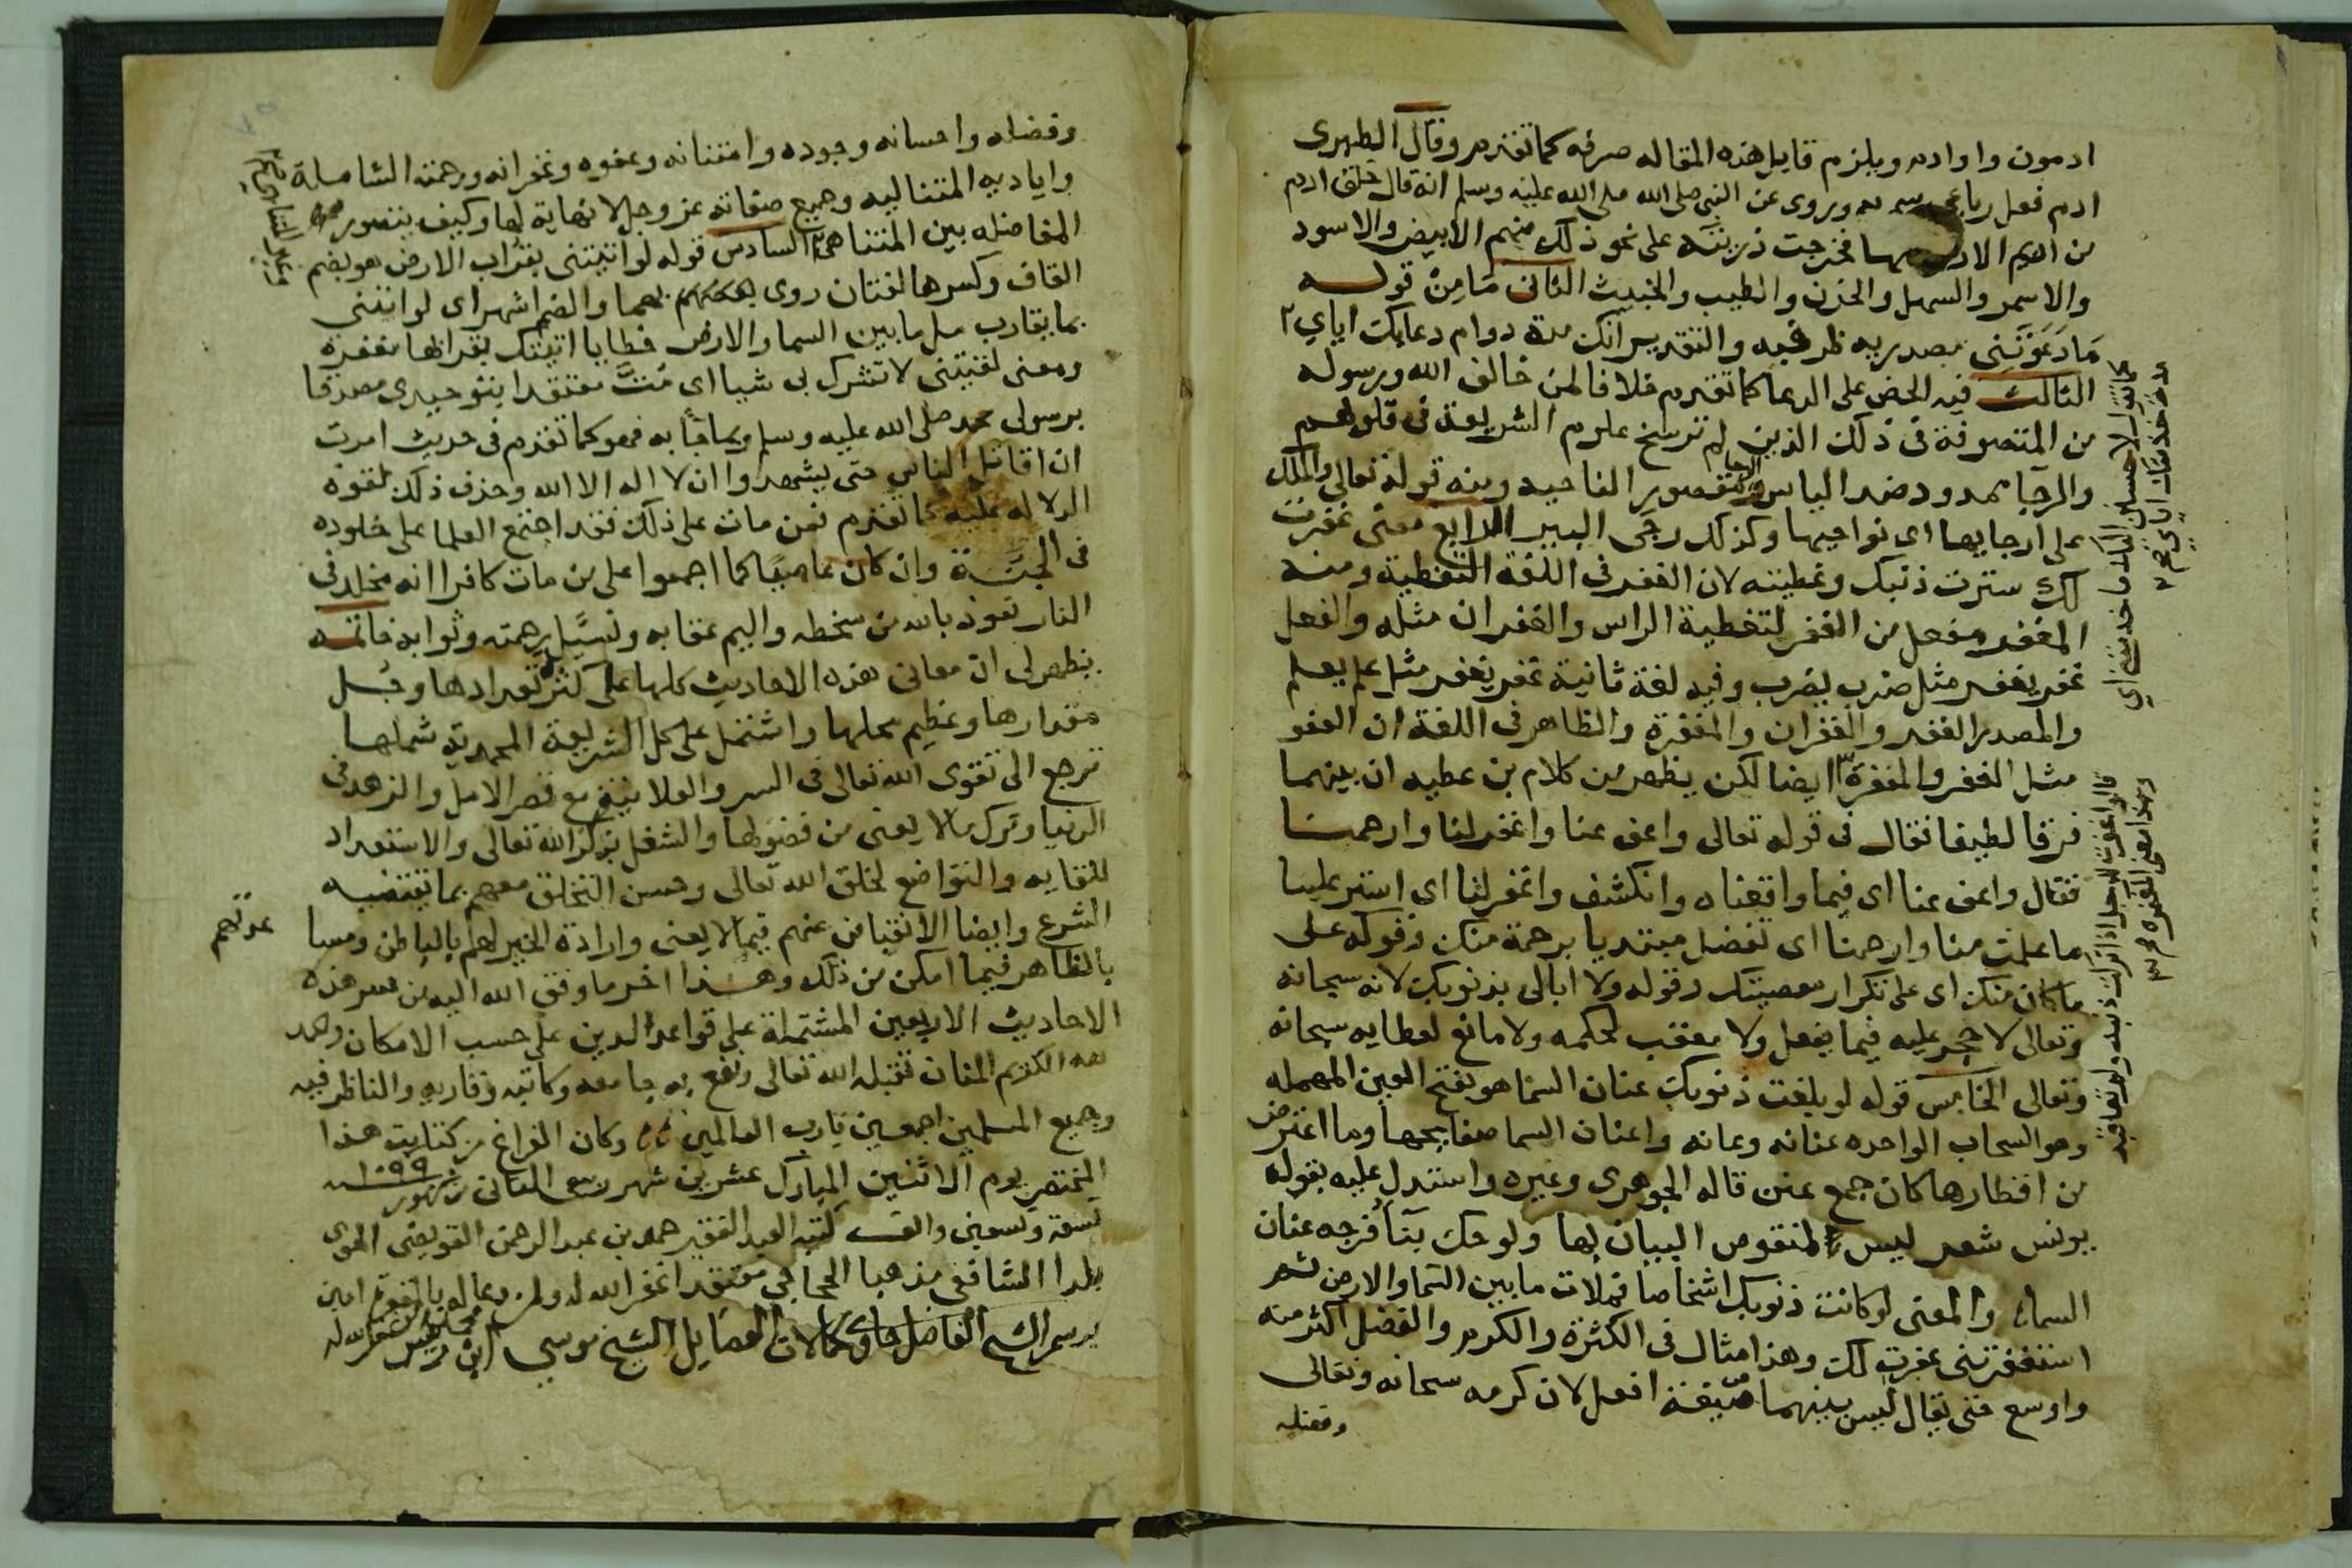 ادمون واوادم ويلزم قايل هذه المقاله صرفه كما تقدم وقال الطبرى
ادم فعل رباعى سمى به وروى عن النبى صلى الله عليه وسلم انه قال خلق ادم
من اديم الارض فخرجت ذريته على نحو ذلك منهم الابيض والاسود
والاسمر والسهل والحزن والطيب والخبيث الثانى مَا مِنْ قوله
مَا دَعَوْتَنِى مصدريه ظرفيه والتقدير انك مدة دوام دعايك اياي
الثالث فيه الحض على الدعا كما تقدم خلافا لمن خالف الله ورسوله
من المتصوفة فى ذلك الذين لم ترسخ علوم الشريعة فى قلوبهم
والرجا ممدود ضد الياس والرجا مقصور الناحيه ومنه قوله تعالى والملك
على ارجايها اى نواحيها وكذلك رجى البير الرابع معنى غفرت
لك سترت ذنبك وغطيته لان الغفر فى اللغة التغطية ومنه
المغفر مفعل من الغفر لتغطية الراس والغفران مثله والفعل
غفر يغفر مثل ضرب يضرب وفيه لغة ثانية غفر يغفر مثل علم يعلم
والمصدر الغفر والغفران والمغفرة والظاهر فى اللغة ان العفو
مثل الغفر والمغفرة ايضا لكن يظهر من كلام بن عطيه ان بينهما
فرقا لطيفا فقال فى قوله تعالى واعف عنا واغفر لنا وارحمنا
فقال واعف عنا اى فيما واقعناه وانكشف واغفر لنا اى استر علينا
ما علمت منا وارحمنا اى تفضل مبتديا برحمة منك وقوله على
ما كان منك اى على تكرار معصيتك وقوله ولا ابالى بذنوبك لانه سبحانه
وتعالى لا حجر عليه فيما يفعل ولا معقب لحكمه ولا مانع لعطايه سبحانه
وتعالى الخامس قوله لو بلغت ذنوبك عنان السما هو بفتح العين المهمله
وهو السحاب الواحده عنانه وعنانه واعنان السما صفايحها وما اعترض
من اقطارها كان جمع عنن قاله الجوهرى وغيره واستدل عليه بقوله
يونس شعر ليس لمنقوص البيان بها ولو حك بيافوخه عنان
السماء والمعنى لو كانت ذنوبك اشخاصا فملات ما بين السما والارض ثم
استغفرتنى غفرت لك وهذا مثال فى الكثرة والكرم والفضل اكثر منه
واوسع حتى يقال ليس بينهما صيغة افعل لان كرمه سبحانه وتعالى
وفضله
كما تقول لاحسنن اليك ما خدمتنى اى
مدة خدمتك اياى صح
قالوا غفر الله لرجل اذا ترك ذنبه ولم يعاقبه
وهذا معنى المغفرة صح
وفضله واحسانه وجوده وامتنانه وعفوه وغفرانه ورحمته الشاملة
واياديه المتتاليه وجميع صفاته عز وجل لا نهاية لها وكيف يتصور
المفاضله بين المتناهى السادس قوله لو اتيتنى بقراب الارض هو بضم
القاف وكسرها لغتان روى بهما والضم اشهر اى لو اتيتنى
بما يقارب مل ما بين السما والارض خطايا اتيتك بقرابها مغفرة
ومعنى لقيتنى لا تشرك بى شيا اى مُتَّ معتقدا بتوحيدى مصدقا
برسولى محمد صلى الله عليه وسلم وبما جَا به فهو كما تقدم فى حديث امرت
ان اقاتل الناس حتى يشهدوا ان لا اله الا الله وحذف ذلك لقوة
الدلاله عليه كما تقدم فمن مات على ذلك فقد اجتمع العلما على خلوده
فى الجنَّة وان كان عاصيًا كما اجمعوا على من مات كافرا انه مخلد فى
النار نعوذ بالله من سخطه واليم عقابه ونسئل رحمته وثوابه خاتمة
يظهر لى ان معانى هذه الاحاديث كلها على كثرة تعدادها وجُل
مقدارها وعظيم محلها واشتمل على كل الشريعة المحمدية شملها
ترجع الى تقوى الله تعالى فى السر والعلانية مع قصر الامل والزهد فى
الدنيا وترك ما لا يعنى من فضولها والشغل بذكر الله تعالى والاستعداد
للقايه والتواضع لخلق الله تعالى وحسن التخلق معهم بما تقتضيه
الشرع وايضا الانقباض عنهم فيما لا يعنى وارادة الخير لهم بالباطن ومسا
عدتهم
بالظاهر فيما امكن من ذلك وهذا اخر ما وفق الله اليه من هذه
الاحاديث الاربعين المشتملة على قواعد الدين على حسب الامكان وحمد
لله الكريم المنان تقبله الله تعالى ونفع به جامعه وكاتبه وقاريه والناظر فيه
وجميع المسلمين اجمعين يارب العالمين وكان الفراغ من كتابت هذا
المختصر يوم الاثنين المبارك عشرين شهر ربيع الثانى من شهور سنة ١٠٩٩
تسعة وتسعين والف كتبه العبد الفقير حمد بن عبد الرحمن القويضى
بلدا الشافعى مذهبا معتقدا غفر الله له ولمن دعا له بالمغفرة امين
برسم الشيخ الفاضل حاوى كمالات الفضايل الشيخ موسى ابن غفر الله له